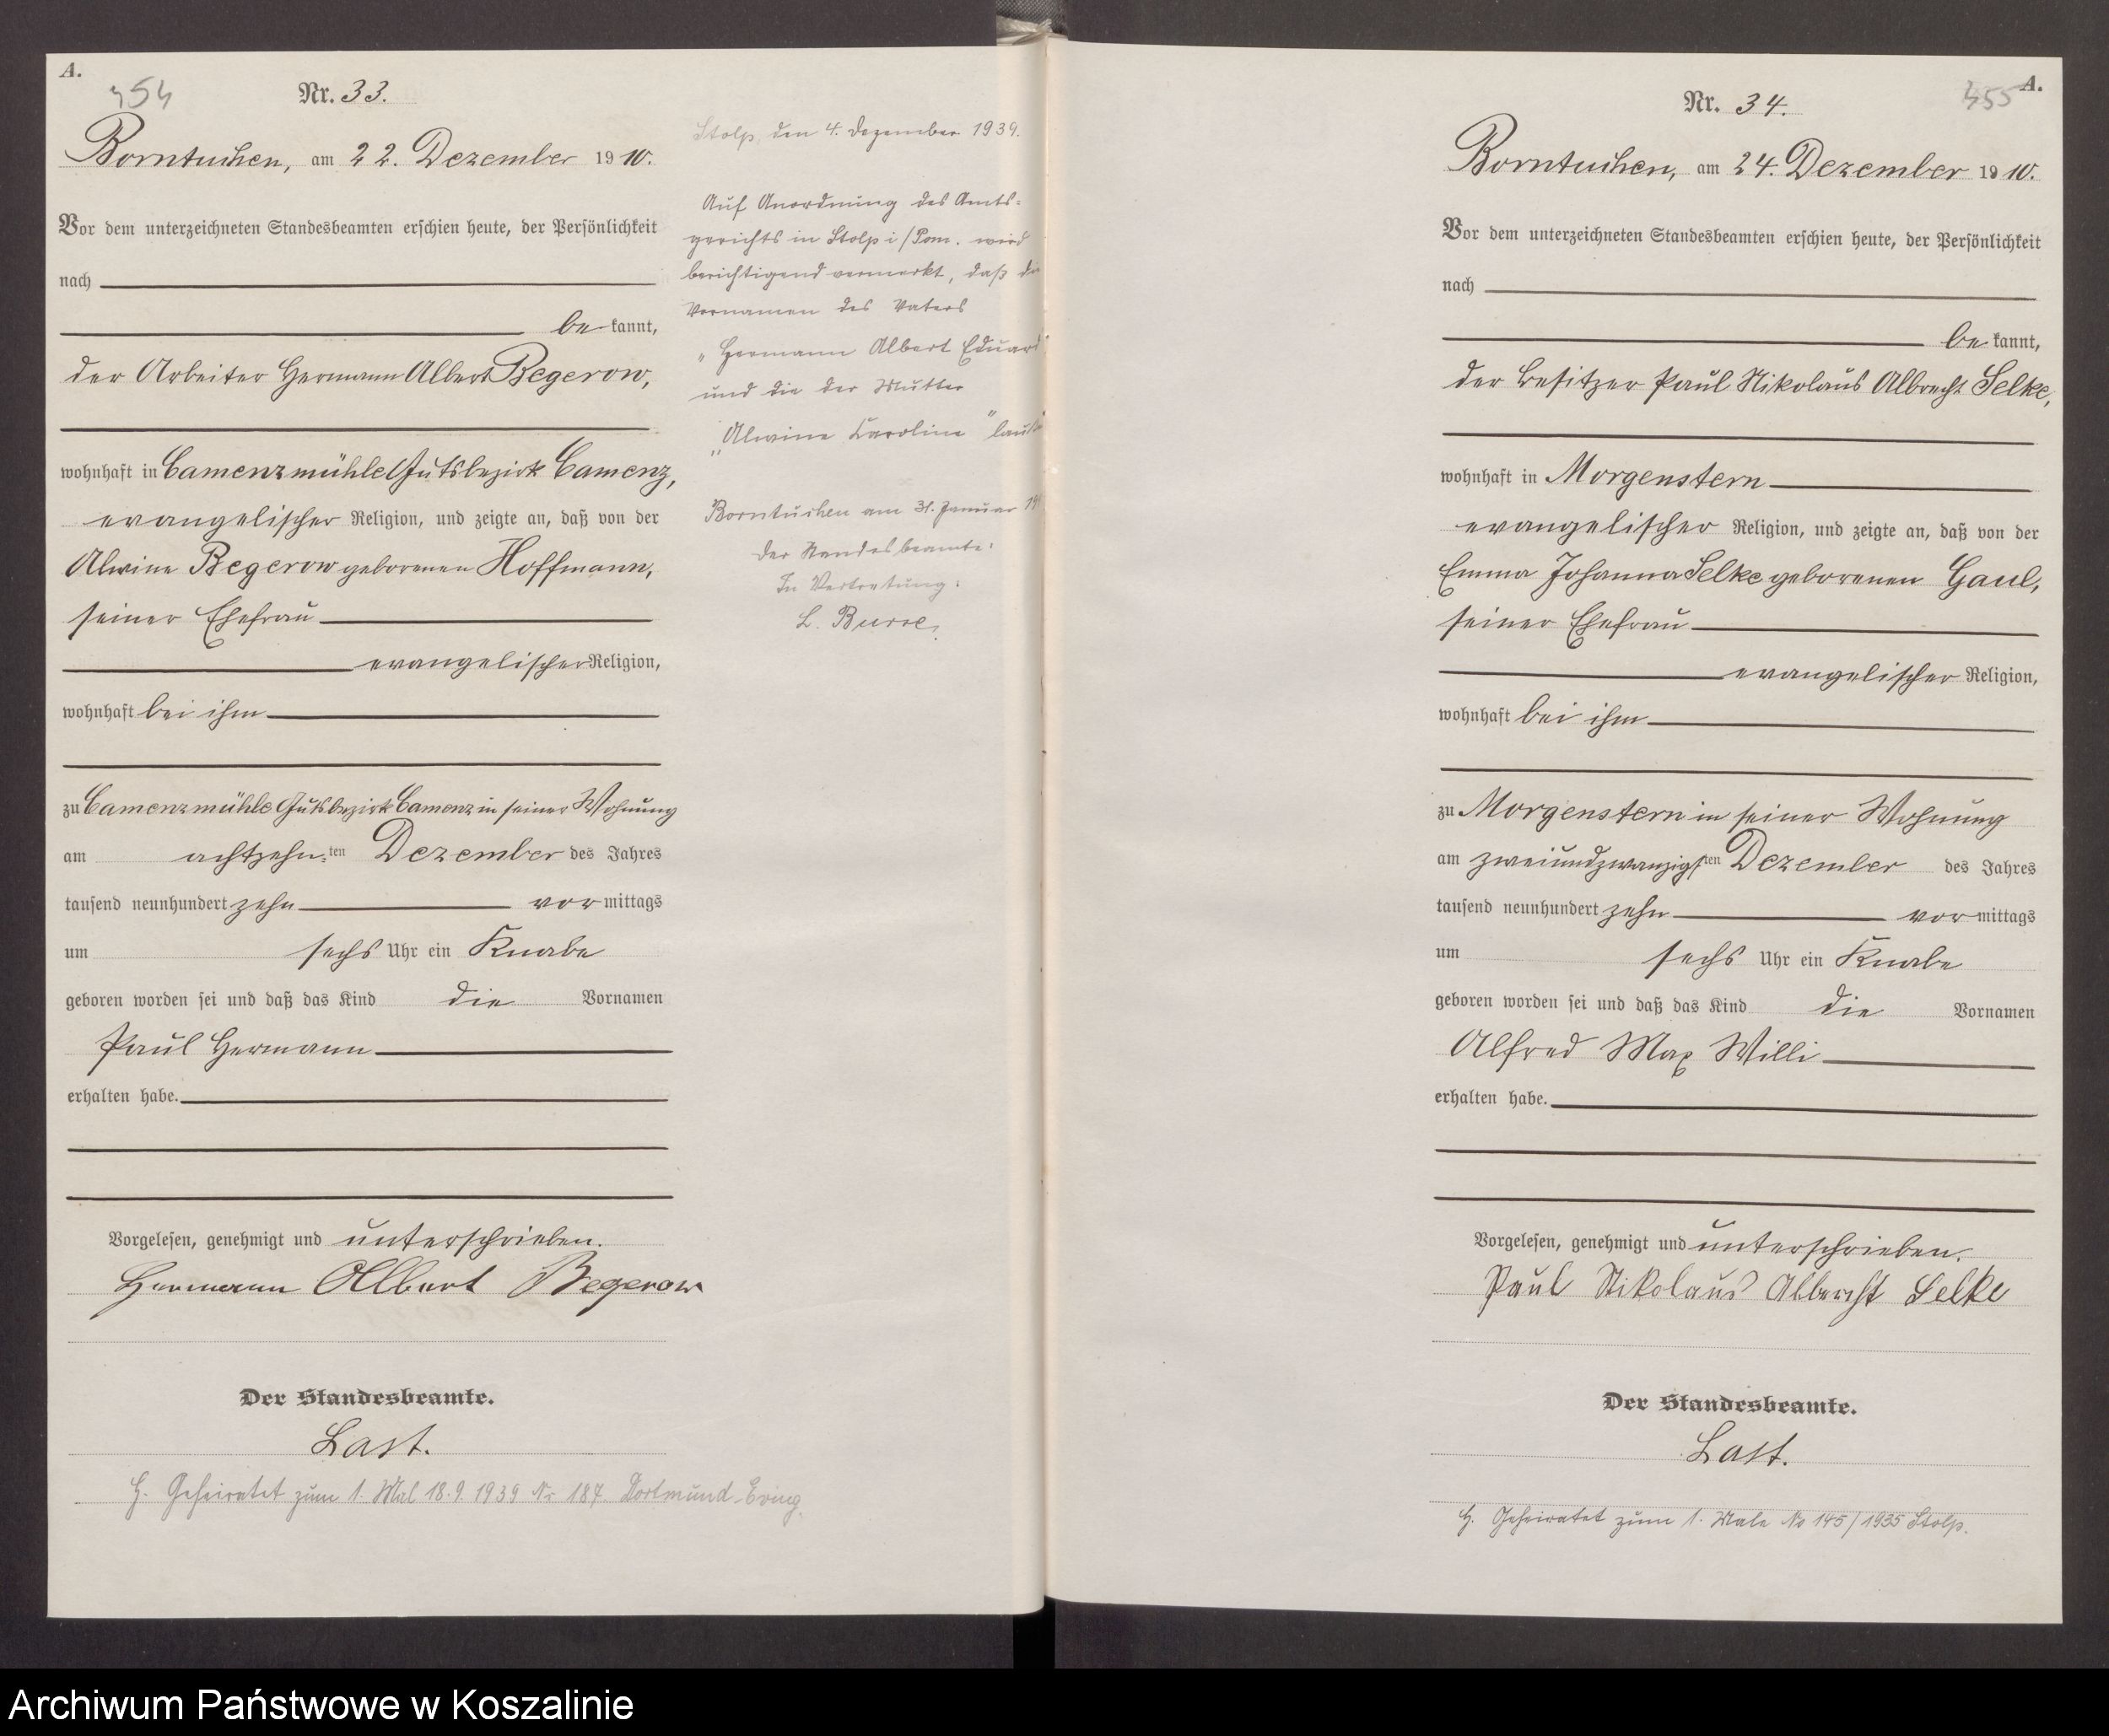 A.
454
Nr. 33.
Borntuchen, am 22. Dezember 1910.
Vor dem unterzeichneten Standesbeamten erschien heute, der Persönlichkeit
nach
be kannt,
der Arbeiter Hermann Albert Begerow,
wohnhaft in Camenzmühle Gutsbezirk Camenz,
evangelischer Religion, und zeigte an, daß von der
Alwine Begerow geborenen Hoffmann,
seiner Ehefrau
evangelischer Religion,
wohnhaft bei ihm
zu Camenzmühle Gutsbezirk Camenz in seiner Wohnung
am achtzehn-ten Dezember des Jahres
tausend neunhundert zehn vor mittags
um sechs Uhr ein Knabe
geboren worden sei und daß das Kind die Vornamen
Paul Hermann
erhalten habe.
Vorgelesen, genehmigt und unterschrieben.
Hermann Albert Begerow
Der Standesbeamte.
Last.
H. Geheiratet zum 1. Mal 18.9.1939 Nr 187 Dortmund-Eving.
Stolp, den 4. Dezember 1939.
Auf Anordnung des Amts-
gerichts in Stolp i/Pom. wird
berichtigend vermerkt, daß die
Vornamen des Vaters
„Hermann Albert Eduard"
und die der Mutter
„Alwine Caroline"
Borntuchen am 31. Januar
Der Standesbeamte:
In Vertretung:
L. Burre.
455
A.
Nr. 34.
Borntuchen, am 24. Dezember 1910.
Vor dem unterzeichneten Standesbeamten erschien heute, der Persönlichkeit
nach
be kannt,
der Besitzer Paul Nikolaus Albrecht Selke,
wohnhaft in Morgenstern
evangelischer Religion, und zeigte an, daß von der
Emma Johanna Selke geborenen Gaul,
seiner Ehefrau
evangelischer Religion,
wohnhaft bei ihm
zu Morgenstern in seiner Wohnung
am zweiundzwanzigsten Dezember des Jahres
tausend neunhundert zehn vor mittags
um sechs Uhr ein Knabe
geboren worden sei und daß das Kind die Vornamen
Alfred Max Willi
erhalten habe.
Vorgelesen, genehmigt und unterschrieben.
Paul Nikolaus Albrecht Selke
Der Standesbeamte.
Last.
H. Geheiratet zum 1. Male No 145/1935 Stolp.
Archiwum Państwowe w Koszalinie